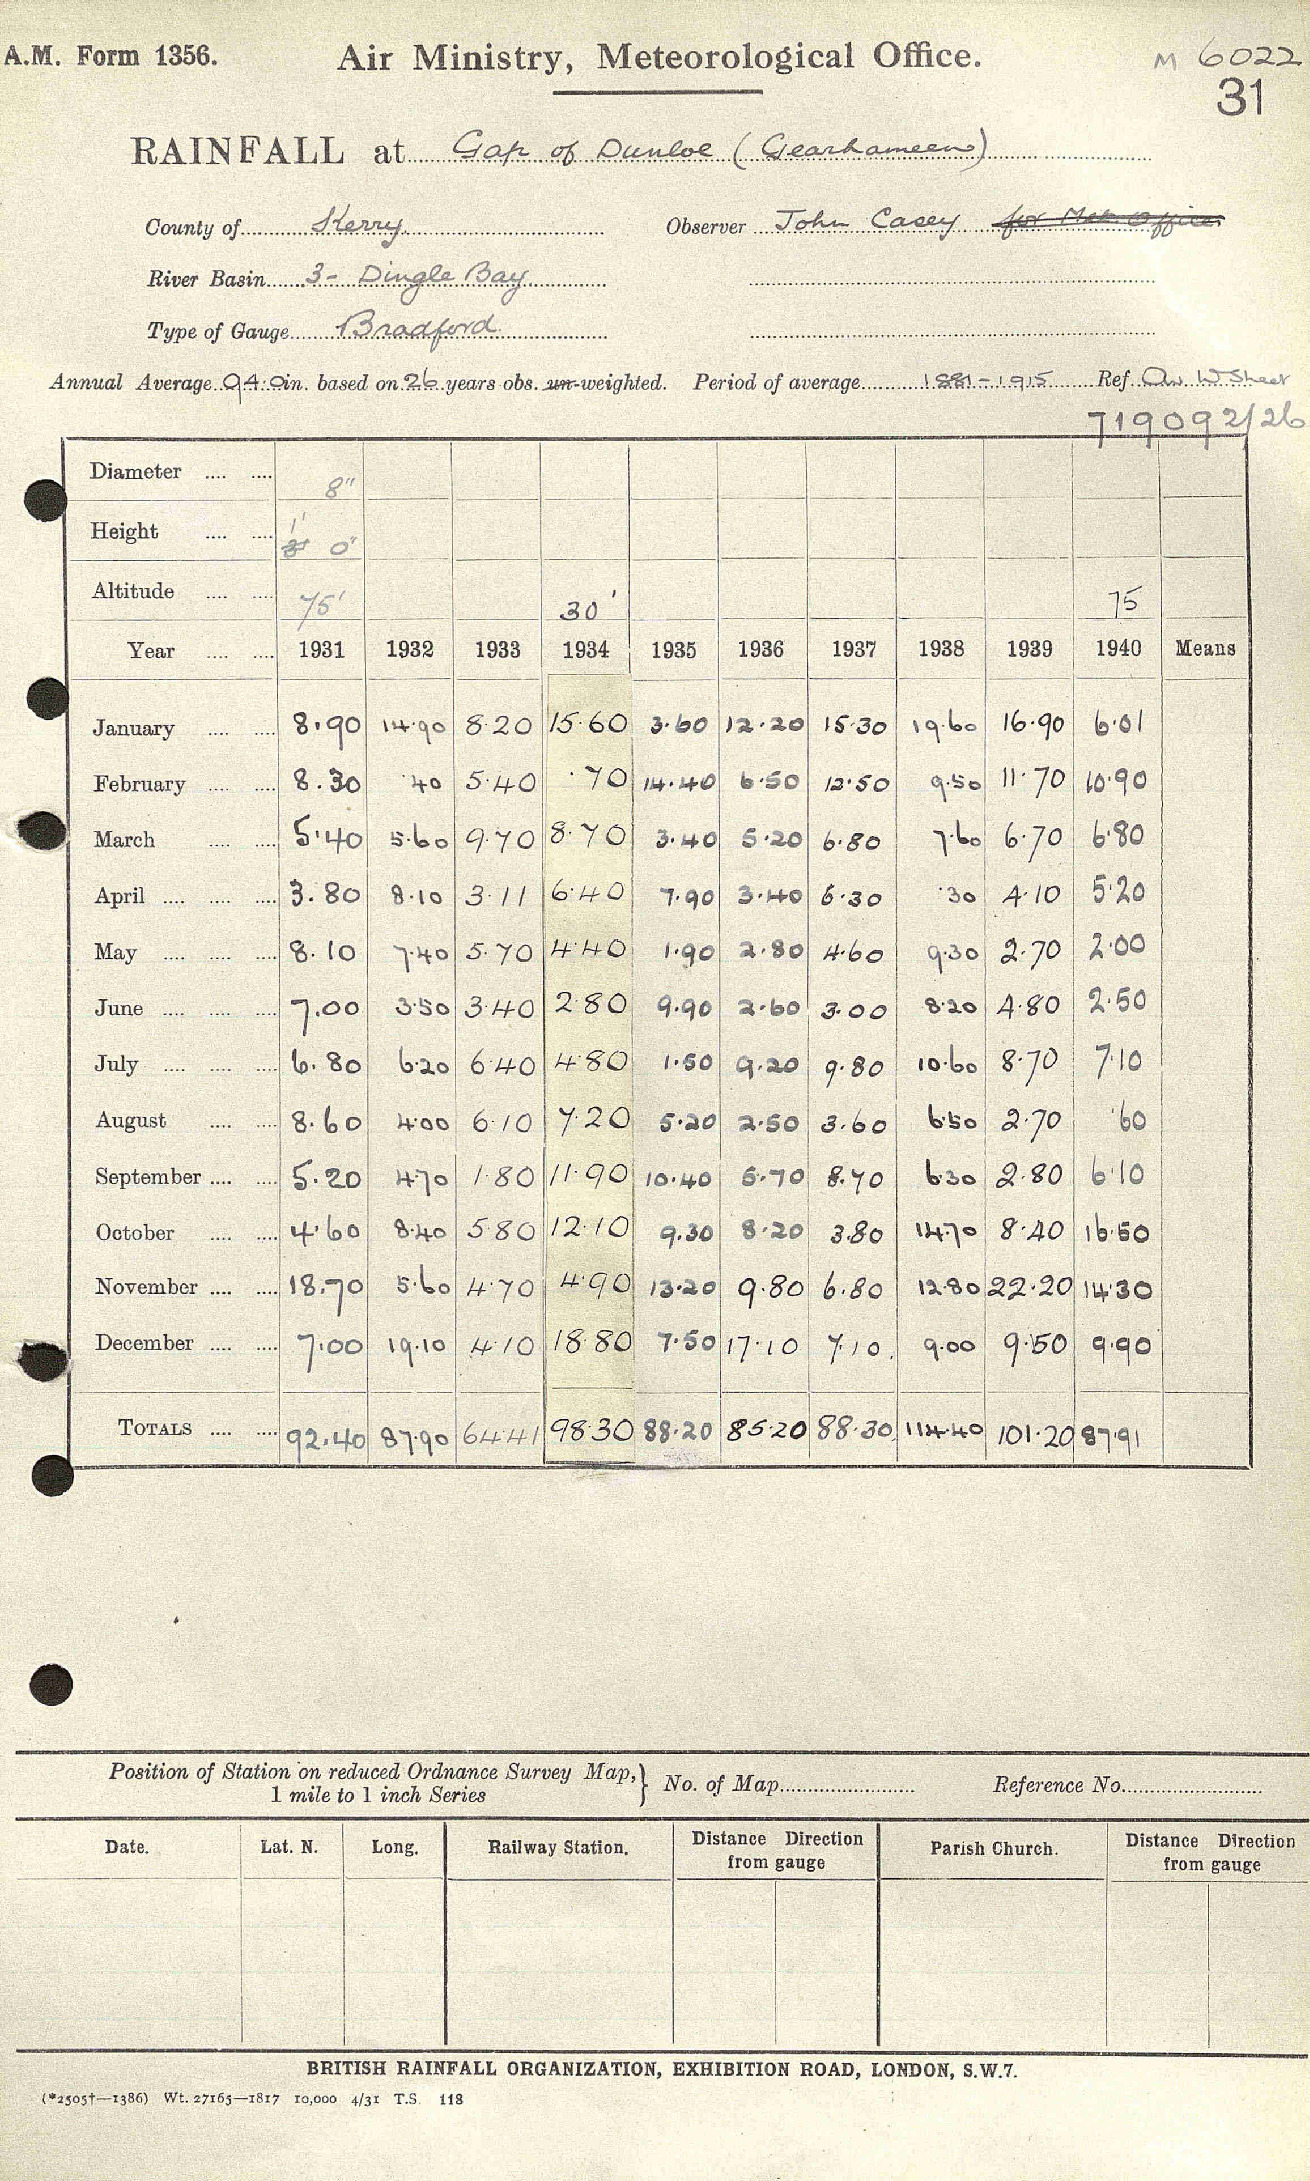 A.M. Form 1356. Air Ministry, Meteorological Office. M 6022
31
RAINFALL at Gap of Dunloe (Gearhameen)
County of Kerry Observer John Casey for Met. Office
River Basin 3 - Dingle Bay
Type of Gauge Bradford
Annual Average 94.0 in. based on 26 years obs. un-weighted. Period of average 1881-1915 Ref. Av. W Sheet
719092/26
Diameter .... .... 8"
Height .... .... 1' 0"
Altitude .... .... 75' 30' 75
Year .... .... 1931 1932 1933 1934 1935 1936 1937 1938 1939 1940 Means
January .... .... 8.90 14.90 8.20 15.60 3.60 12.20 15.30 19.60 16.90 6.01
February .... .... 8.30 .40 5.40 .70 14.40 6.50 12.50 9.50 11.70 10.90
March .... .... 5.40 5.60 9.70 8.70 3.40 5.20 6.80 7.60 6.70 6.80
April .... .... .... 3.80 8.10 3.11 6.40 7.90 3.40 6.30 .30 4.10 5.20
May .... .... .... 8.10 7.40 5.70 4.40 1.90 2.80 4.60 9.30 2.70 2.00
June .... .... .... 7.00 3.50 3.40 2.80 9.90 2.60 3.00 8.20 4.80 2.50
July .... .... .... 6.80 6.20 6.40 4.80 1.50 9.20 9.80 10.60 8.70 7.10
August .... .... 8.60 4.00 6.10 7.20 5.20 2.50 3.60 6.50 2.70 .60
September .... .... 5.20 4.70 1.80 11.90 10.40 5.70 8.70 6.30 2.80 6.10
October .... .... 4.60 8.40 5.80 12.10 9.30 8.20 3.80 14.70 8.40 16.50
November .... .... 18.70 5.60 4.70 4.90 13.20 9.80 6.80 12.80 22.20 14.30
December .... .... 7.00 19.10 4.10 18.80 7.50 17.10 7.10 9.00 9.50 9.90
TOTALS .... .... 92.40 87.90 64.41 98.30 88.20 85.20 88.30 114.40 101.20 87.91
Position of Station on reduced Ordnance Survey Map, } No. of Map Reference No.
1 mile to 1 inch Series
Date. Lat. N. Long. Railway Station. Distance Direction Parish Church. Distance Direction
from gauge from gauge
BRITISH RAINFALL ORGANIZATION, EXHIBITION ROAD, LONDON, S.W.7.
(*2505†—1386) Wt. 27165—1817 10,000 4/31 T.S. 118